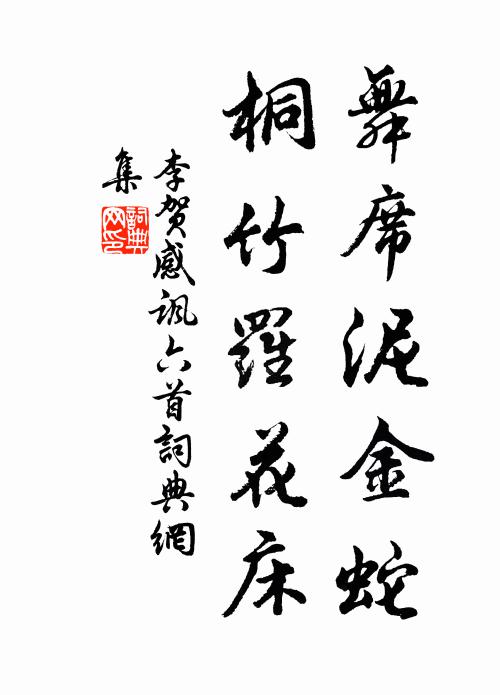 舞席泥金蛇
桐竹羅花床
李賀感諷六首詞典網
集
詞典
网印